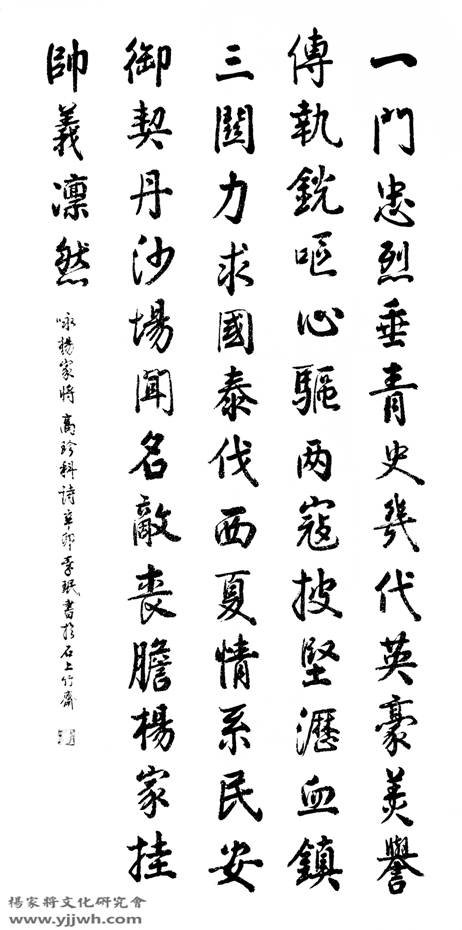 一門忠烈垂青史幾代英豪美譽
傳執銳嘔心驅两寇披堅瀝血鎮
三關力求國泰伐西夏情系民安
御契丹沙場聞名敵喪膽楊家挂
帥義凛然
咏楊家將 高珍科詩辛卯 書於石上竹齋
楊家將文化研究會
www.yjjwh.com